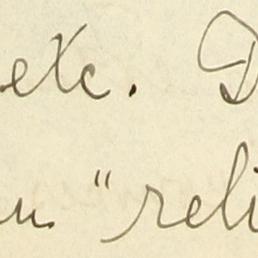 etc. D
" reli